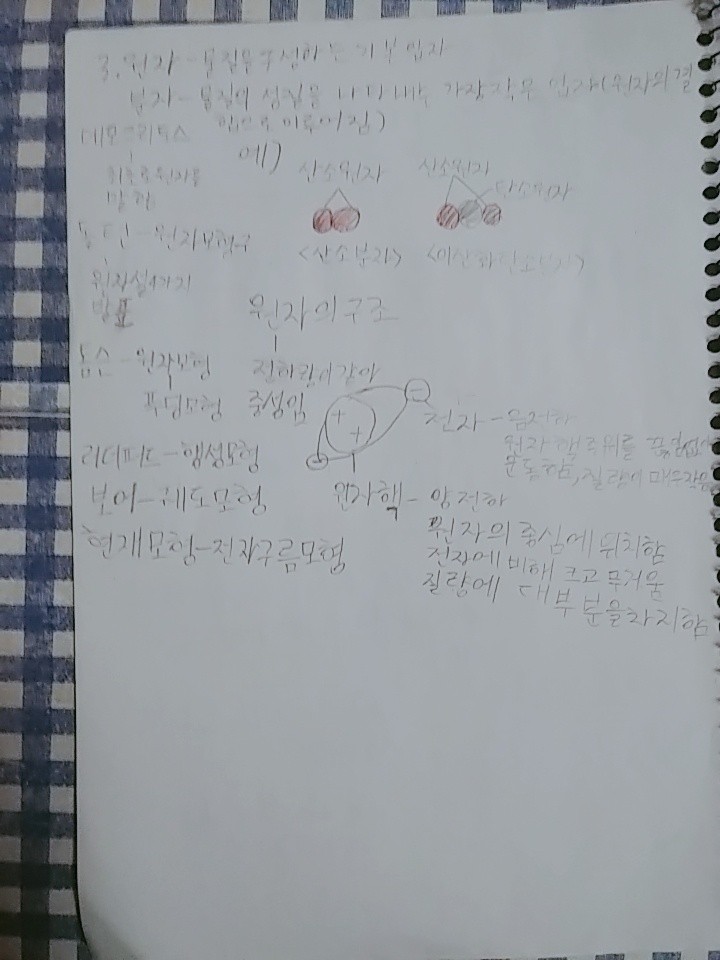 3. 원자 - 물질을 구성하는 기본 입자
분자 - 물질의 성질을 나타내는 가장 작은 입자(원자의 결
합으로 이루어짐)
데모크리토스
최초로 원자를
말함
돌턴 - 원자모형구
원자설 4가지
발표
톰슨 - 원자모형
푸딩모형
러더퍼드 - 행성모형
보어 - 궤도모형
현재모형 - 전자구름모형
예)
산소원자
<산소분자>
산소원자
탄소원자
<이산화탄소분자>
원자의 구조
전하량이 같아
중성임
+
+
-
-
전자 - 음전하
원자핵 주위를
운동함, 질량이 매우 작음
원자핵 - 양전하
원자의 중심에 위치함
전자에 비해 크고 무거움
질량에 대부분을 차지함